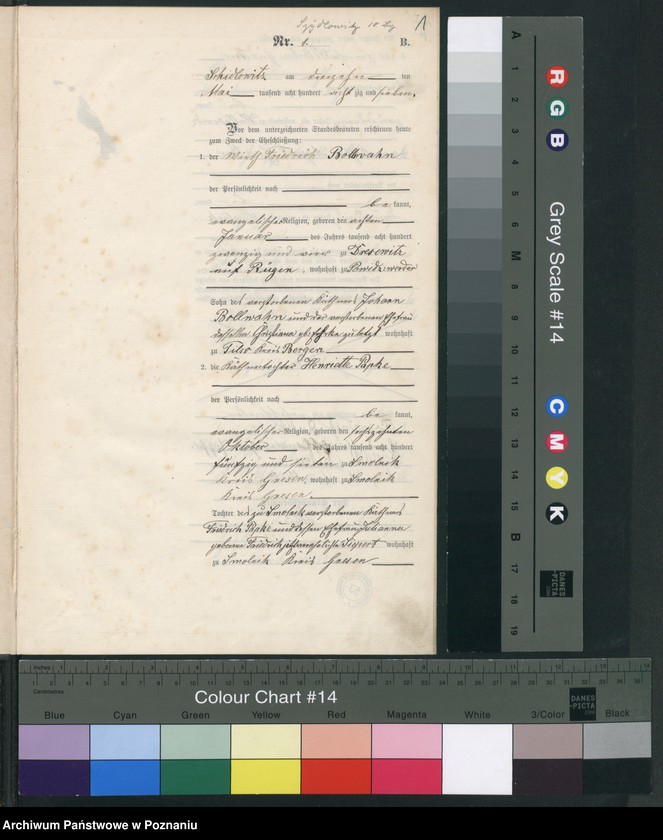 Szydlowitz 10 1
Nr. 1. B.
Schidlowitz am dreizehn ten
Mai tausend acht hundert acht zig und sieben.
Vor dem unterzeichneten Standesbeamten erschienen heute
zum Zweck der Eheschließung:
1. der Wirth Friedrich Bollwahn
der Persönlichkeit nach
be kannt,
evangelischer Religion, geboren den achten
Januar des Jahres tausend acht hundert
zwanzig und vier zu Dresewitz
auf Rügen, wohnhaft zu
Sohn des verstorbenen Käthners Johann
Bollwahn und der verstorbenen Ehefrau
desselben Christiana geb. zuletzt wohnhaft
zu Kreis Bergen
2. die Käthnertochter Henriette Papke
der Persönlichkeit nach
be kannt,
evangelischer Religion, geboren den sechszehnten
Oktober des Jahres tausend acht hundert
fünfzig und sieben zu Smolnik
Kreis Gnesen, wohnhaft zu Smolnik
Kreis Gnesen
Tochter des zu Smolnik verstorbenen Käthners
Friedrich Papke und dessen Ehefrau Johanna
geborene wohnhaft
zu Smolnik Kreis Gnesen
A
1
2
3
4
5
6
M
8
9
10
11
12
13
14
15
B
17
18
19
R
G
B
Grey Scale #14
C
M
Y
K
DANES
-PICTA
.COM
Inches 1 2 3 4 5 6 7 8 9 10 11 12 13 14
Centimetres
Colour Chart #14
DANES
-PICTA
.COM
Blue Cyan Green Yellow Red Magenta White 3/Color Black
Archiwum Państwowe w Poznaniu